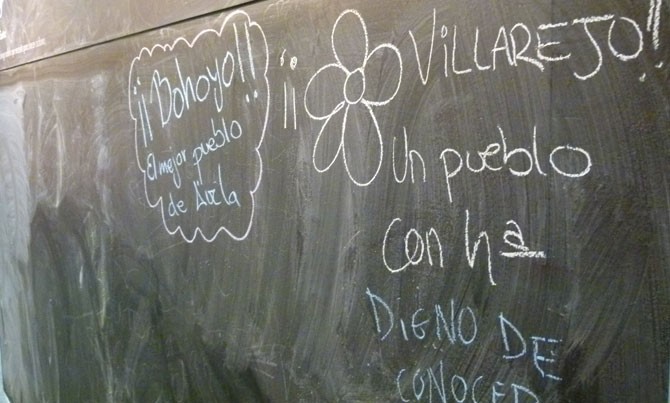 ¡¡Bohoyo!!
El mejor pueblo
de Ávila
¡¡ VILLAREJO!!
Un pueblo
con hª
DIGNO DE
CONOCER